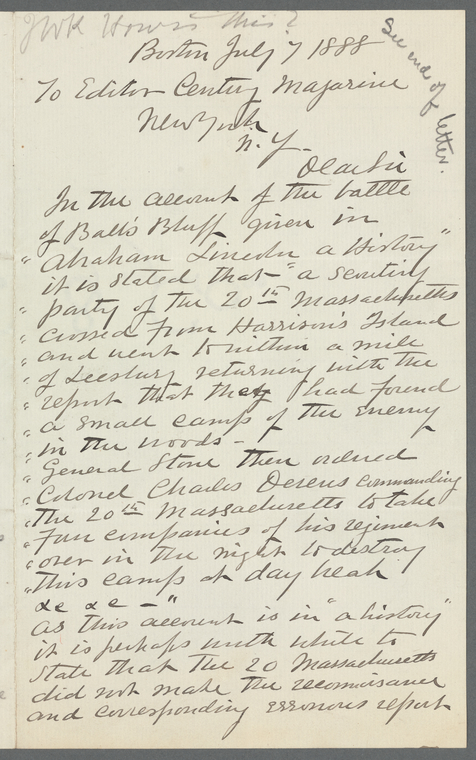 JWK How's this?
See end of letter.
Boston July 7 1888
To Editor Century Magazine
New York
N.Y.
Dear Sir
In the account of the battle
of Ball's Bluff given in
"Abraham Lincoln a History"
it is stated that "a scouting
" party of the 20th Massachusetts
" crossed from Harrison's Island
" and went to within a mile
" of Leesburg returning with the
" report that they had found
" a small camp of the enemy
" in the woods -
" General Stone then ordered
" Colonel Charles Devens commanding
" the 20th Massachusetts to take
" four companies of his regiment
" over in the night to destroy
" this camp at day break
&c &c - "
As this account is in "a history"
it is perhaps worth while to
state that the 20 Massachusetts
did not make the reconnaisance
and corresponding erronous report